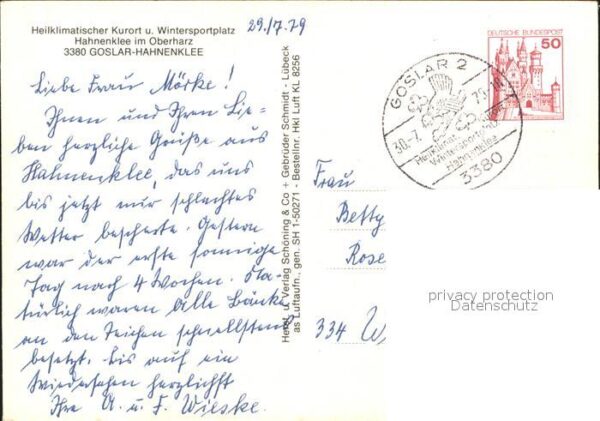 Heilklimatischer Kurort u. Wintersportplatz
Hahnenklee im Oberharz
3380 GOSLAR-HAHNENKLEE
29./7.79
Liebe Frau Mörke!
Ihnen und Ihren Lie-
ben herzliche Grüße aus
Hahnenklee, das uns
bis jetzt nur schlechtes
Wetter bescherte. Gestern
war der erste sonnige
Tag nach 4 Wochen. Na-
türlich waren alle Bänke
an den Teichen schnellstens
besetzt. Bis auf ein
Wiedersehen herzlichst
Ihre A. u. F. Wieske.
Herst. u. Verlag Schöning & Co + Gebrüder Schmidt - Lübeck
as Luftaufn., gen: SH 1-50271 - Bestellnr. Hkl Luft KL 8256
DEUTSCHE BUNDESPOST
50
GOSLAR 2
30.-7. 79-18
Heilklimat.
Wintersportplatz
Hahnenklee
3380
Frau
Betty
Rose
334 W
privacy protection
Datenschutz